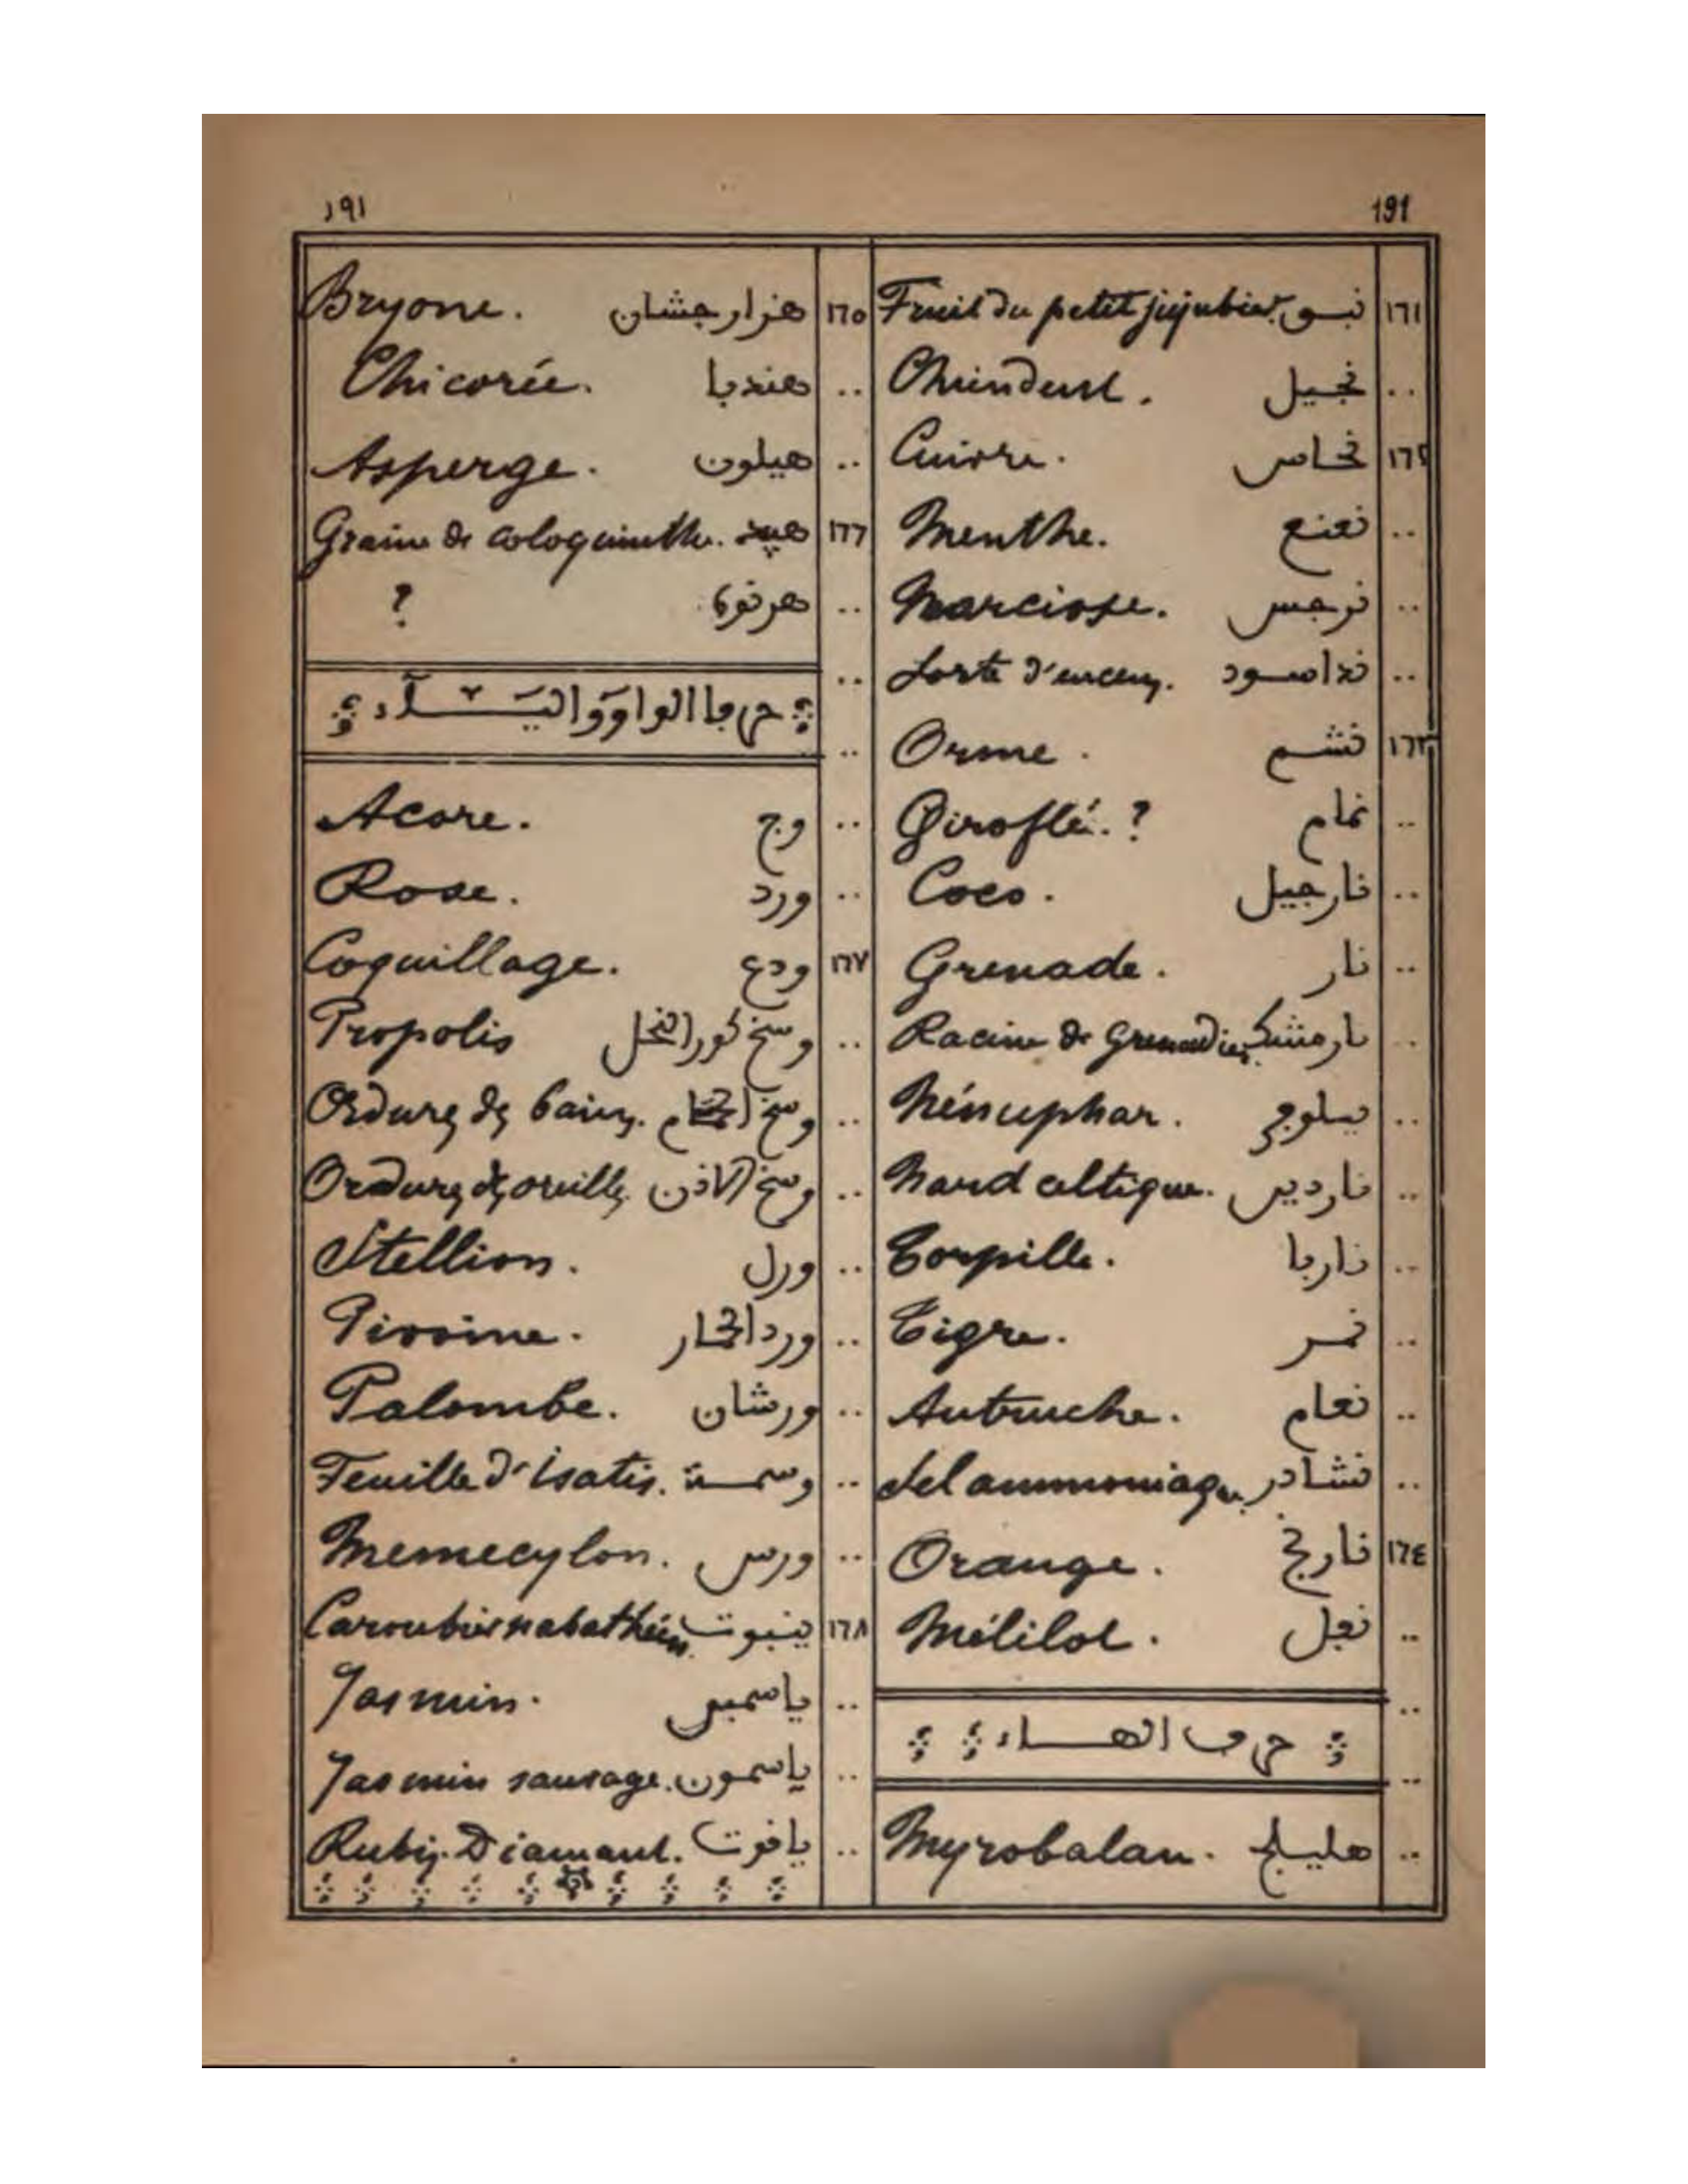 191
١٩١
١٦١ نبق Fruit du petit jujubier.
.. نجيل Chiendent.
١٦٢ نحاس Cuivre.
.. نعنع Menthe.
.. نرجس Narcisse.
.. ند اسود Sorte d'encens.
١٦٣ نشم Orme.
.. نمام Giroflée.?
.. نارجيل Coco.
.. نار Grenade.
.. نارمشك Racine de Grenadier.
.. Nénuphar.
.. نارديس Nard celtique.
.. ناربا Torpille.
.. نمر Tigre.
.. نعام Autruche.
.. نشادر Sel ammoniaque
١٦٤ نارنج Orange.
.. نفل Mélilot.
.. حرف الهاء
.. هليلج Myrobalan.
١٦٥ هزارجشان Bryone.
.. هندبا Chicorée.
.. هيلون Asperge.
١٦٦ هبيد Graine de coloquinthe.
.. هرنوة ?
حرفا الواو واليَــآء
.. وج Acore.
.. ورد Rose.
١٦٧ ودع Coquillage.
.. وسخ كور النحل Propolis
.. وسخ الحمام Ordures des bains.
.. وسخ الاذن Ordures des oreilles
.. ورل Stellion.
.. ورد الحمار Pivoine.
.. ورشان Palombe.
.. وسمـة Feuille d'isatis.
.. ورس Memecylon.
١٦٨ ينبوت Caroubier nabathéen.
.. ياسمين Jasmin.
.. ياسمون Jasmin sauvage.
.. ياقوت Rubis. Diamant.